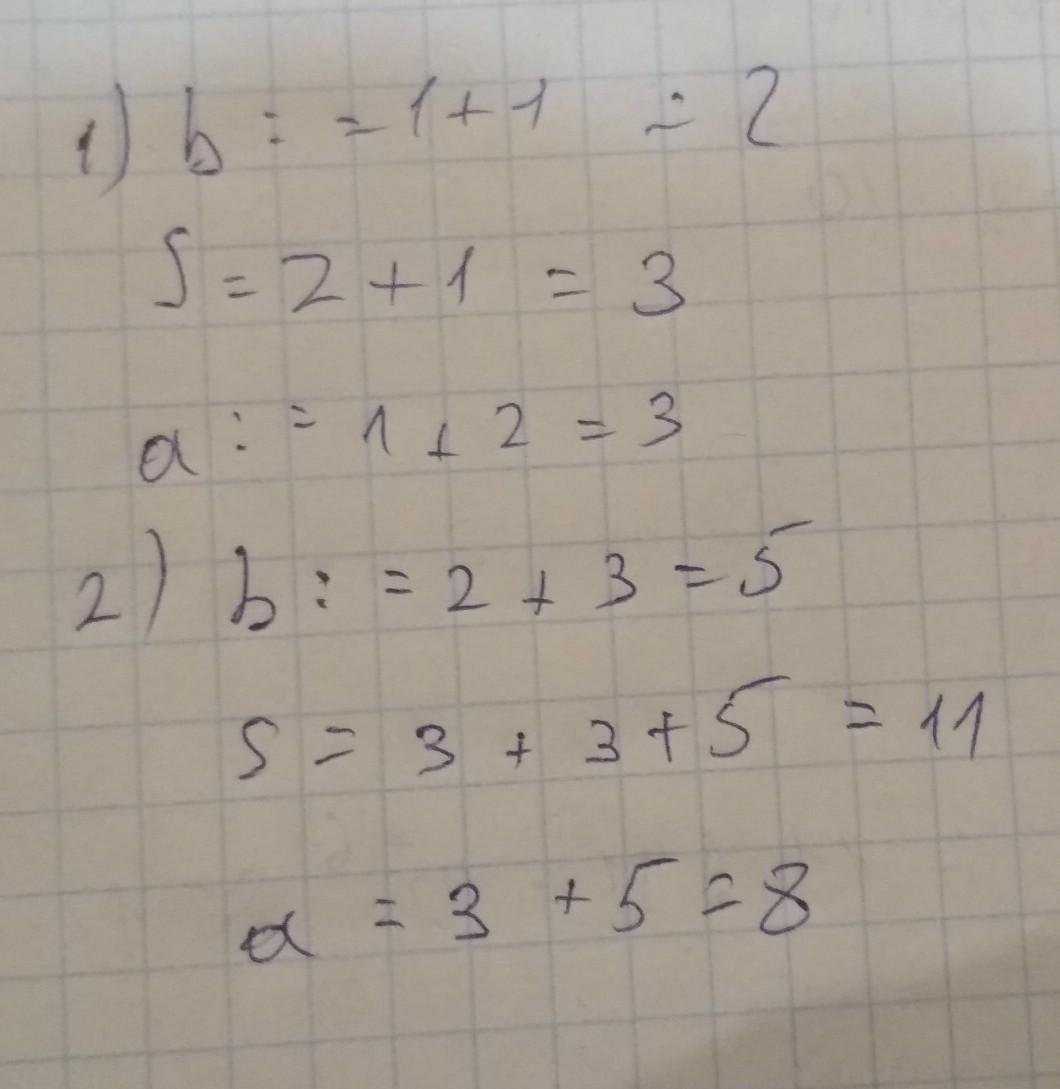 1) b := 1+1 = 2
S = 2 + 1 = 3
a := 1 + 2 = 3
2) b := 2 + 3 = 5
S = 3 + 3 + 5 = 11
a = 3 + 5 = 8